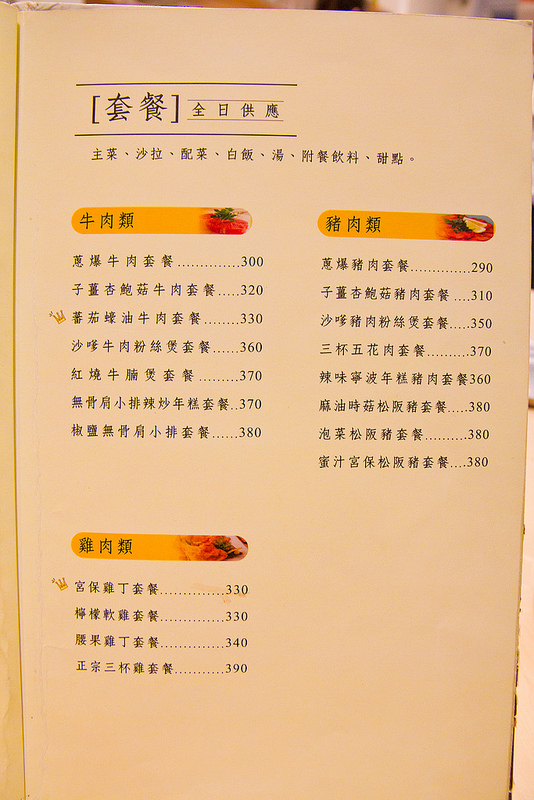 [套餐] 全日供應
主菜、沙拉、配菜、白飯、湯、附餐飲料、甜點。
牛肉類
蔥爆牛肉套餐..............300
子薑杏鮑菇牛肉套餐.....320
蕃茄蠔油牛肉套餐........330
沙嗲牛肉粉絲煲套餐......360
紅燒牛腩煲套餐.........370
無骨肩小排辣炒年糕套餐..370
椒鹽無骨肩小排套餐......380
豬肉類
蔥爆豬肉套餐.............290
子薑杏鮑菇豬肉套餐....310
沙嗲豬肉粉絲煲套餐....350
三杯五花肉套餐..........370
辣味寧波年糕豬肉套餐360
麻油時菇松阪豬套餐.....380
泡菜松阪豬套餐..........380
蜜汁宮保松阪豬套餐....380
雞肉類
宮保雞丁套餐..............330
檸檬軟雞套餐.............330
腰果雞丁套餐.............340
正宗三杯雞套餐...........390